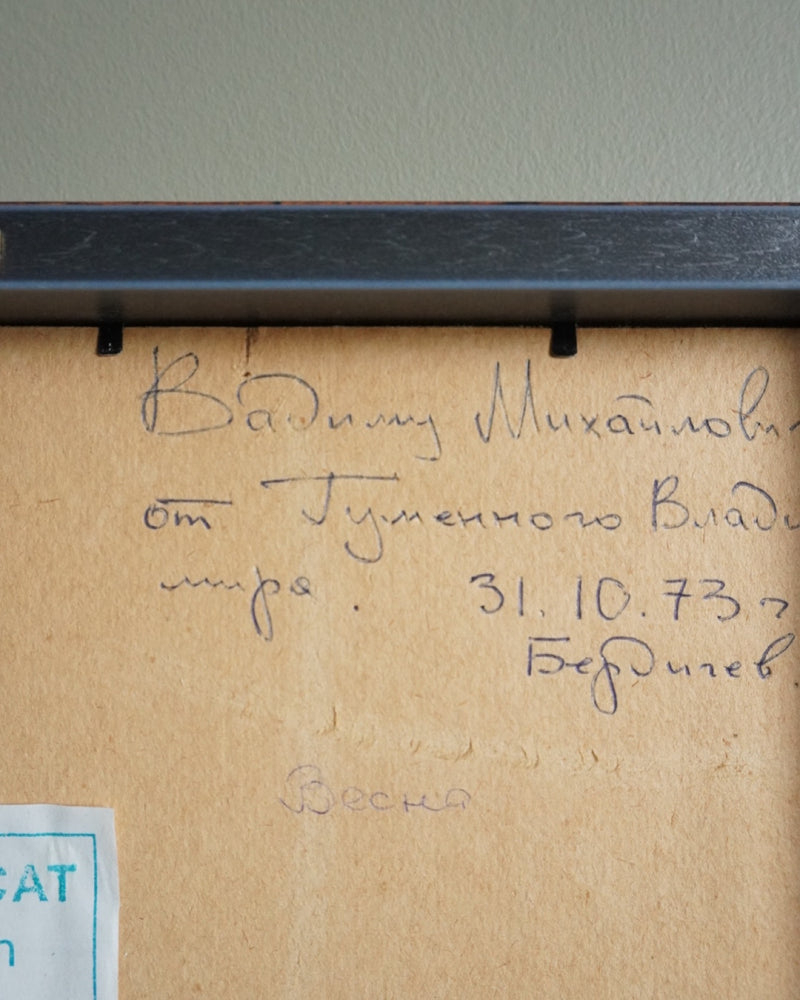 Вадиму Михайлови
от Гуменного Влади
мира. 31.10.73 г
Бердичев.
Весна
CAT
n